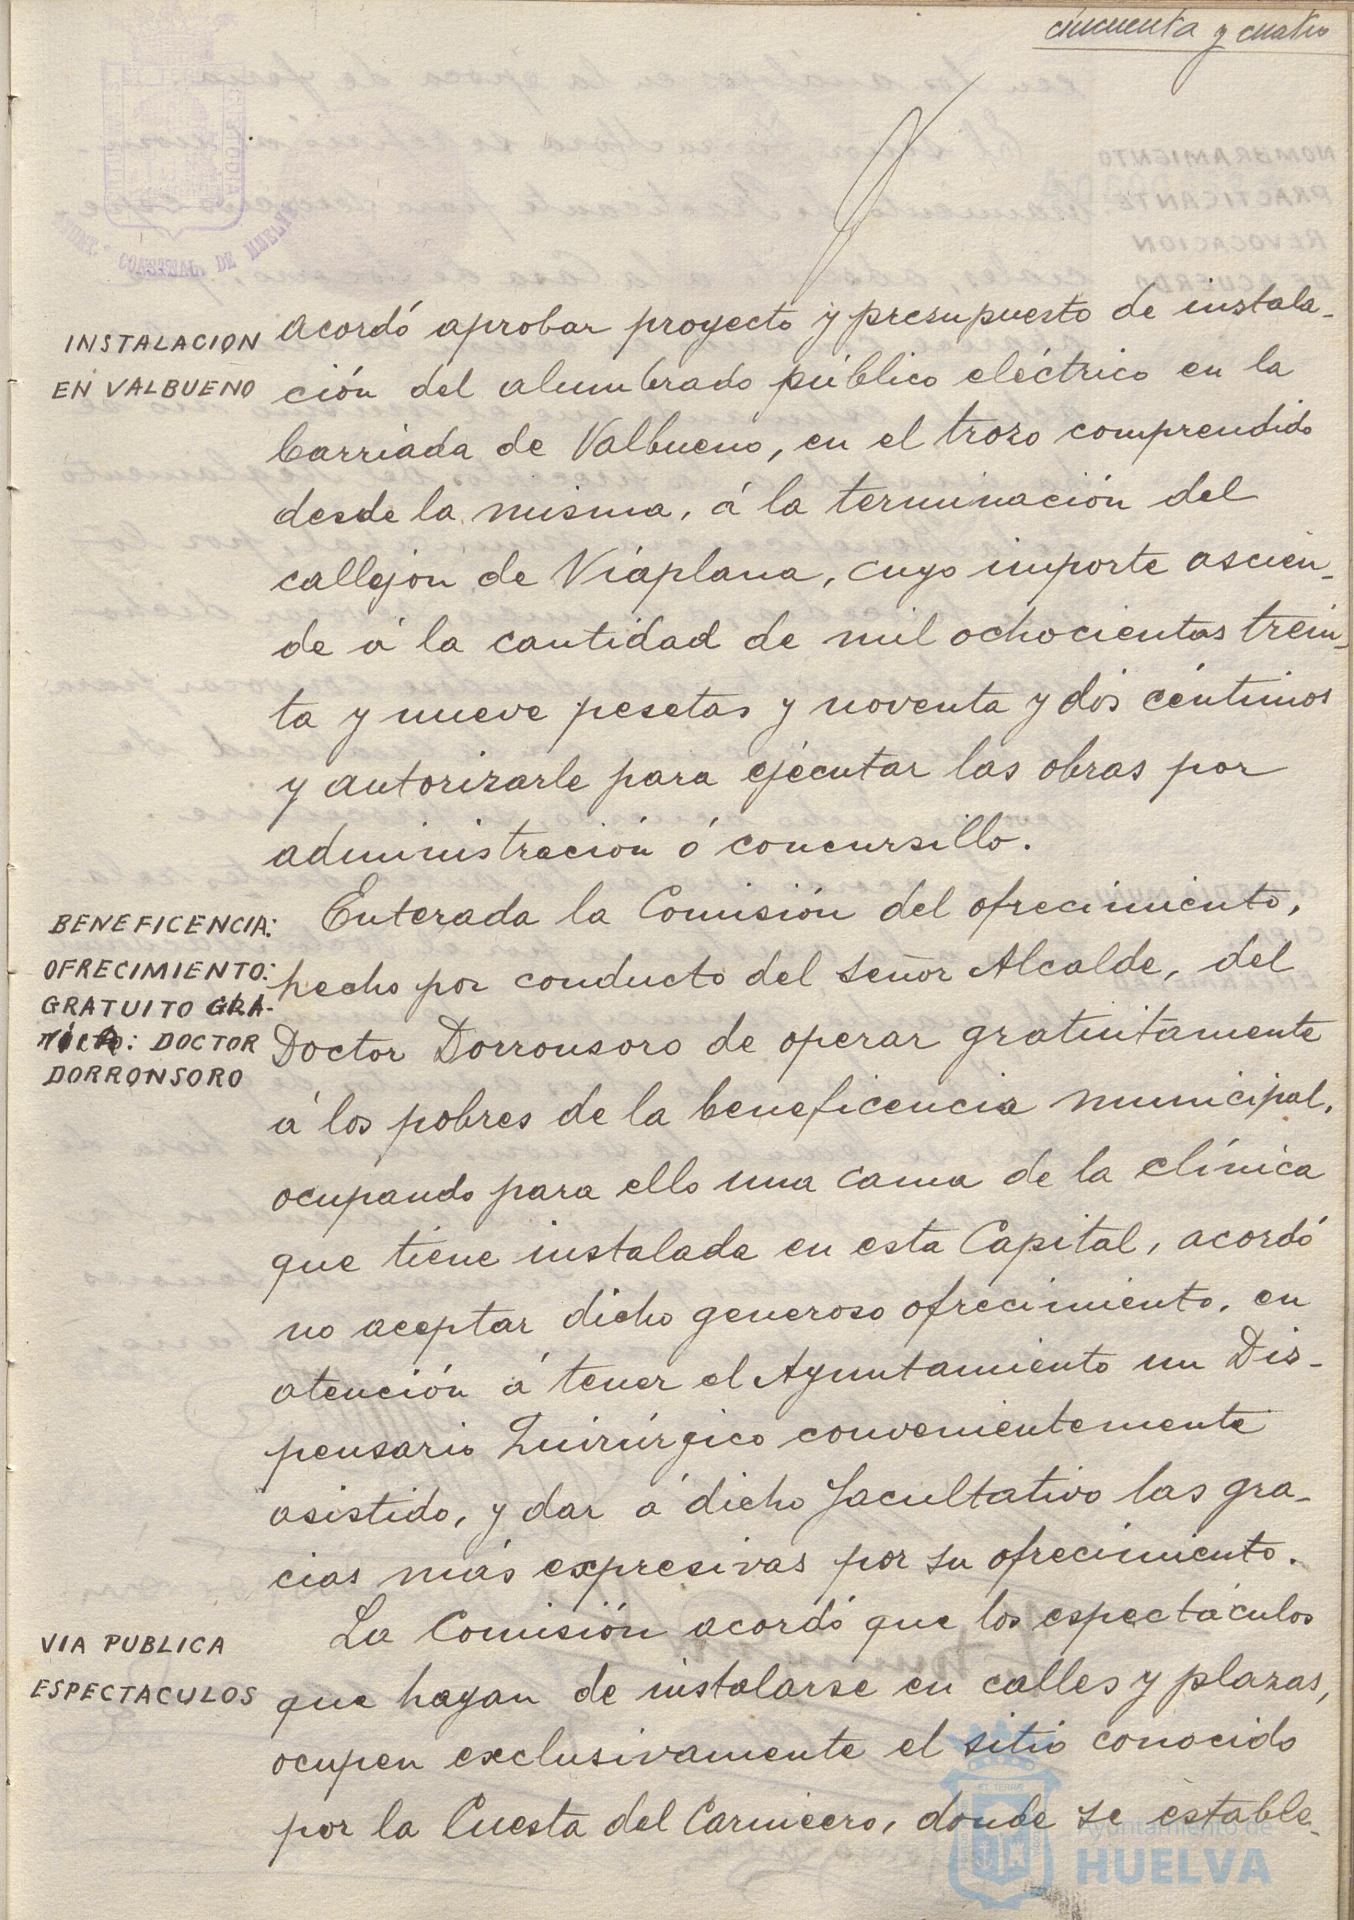 cincuenta y cuatro
AYUNT. CONSTNAL. DE HUELVA
INSTALACION
EN VALBUENO
acordó aprobar proyecto y presupuesto de instala-
ción del alumbrado público eléctrico en la
barriada de Valbueno, en el trozo comprendido
desde la misma, á la terminación del
callejón de Viaplana, cuyo importe ascien-
de á la cantidad de mil ochocientas trein-
ta y nueve pesetas y noventa y dos céntimos
y autorizarle para ejecutar las obras por
administración ó concursillo.
BENEFICENCIA:
OFRECIMIENTO:
GRATUITO GRA-
: DOCTOR
DORRONSORO
Enterada la Comisión del ofrecimiento,
hecho por conducto del señor Alcalde, del
Doctor Dorronsoro de operar gratuitamente
á los pobres de la beneficencia municipal,
ocupando para ello una cama de la clínica
que tiene instalada en esta Capital, acordó
no aceptar dicho generoso ofrecimiento, en
atención á tener el Ayuntamiento un Dis-
pensario Quirúrgico convenientemente
asistido, y dar á dicho facultativo las gra-
cias más expresivas por su ofrecimiento.
VIA PUBLICA
ESPECTACULOS
La Comisión acordó que los espectáculos
que hayan de instalarse en calles y plazas,
ocupen exclusivamente el sitio conocido
por la Cuesta del Carnicero, donde se estable-
Ayuntamiento de
HUELVA